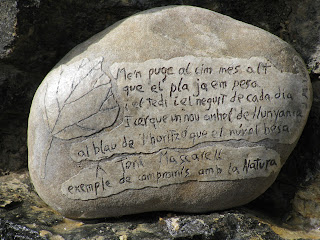 Me'n puge al cim mes alt
que el pla ja em pesa
i el tedi i el neguit de cada dia
I cerque un nou anhel de llunyania
al blau de l'horitzo que el núvol besa
A Toni Mascarell
exemple de compromís amb la Natura